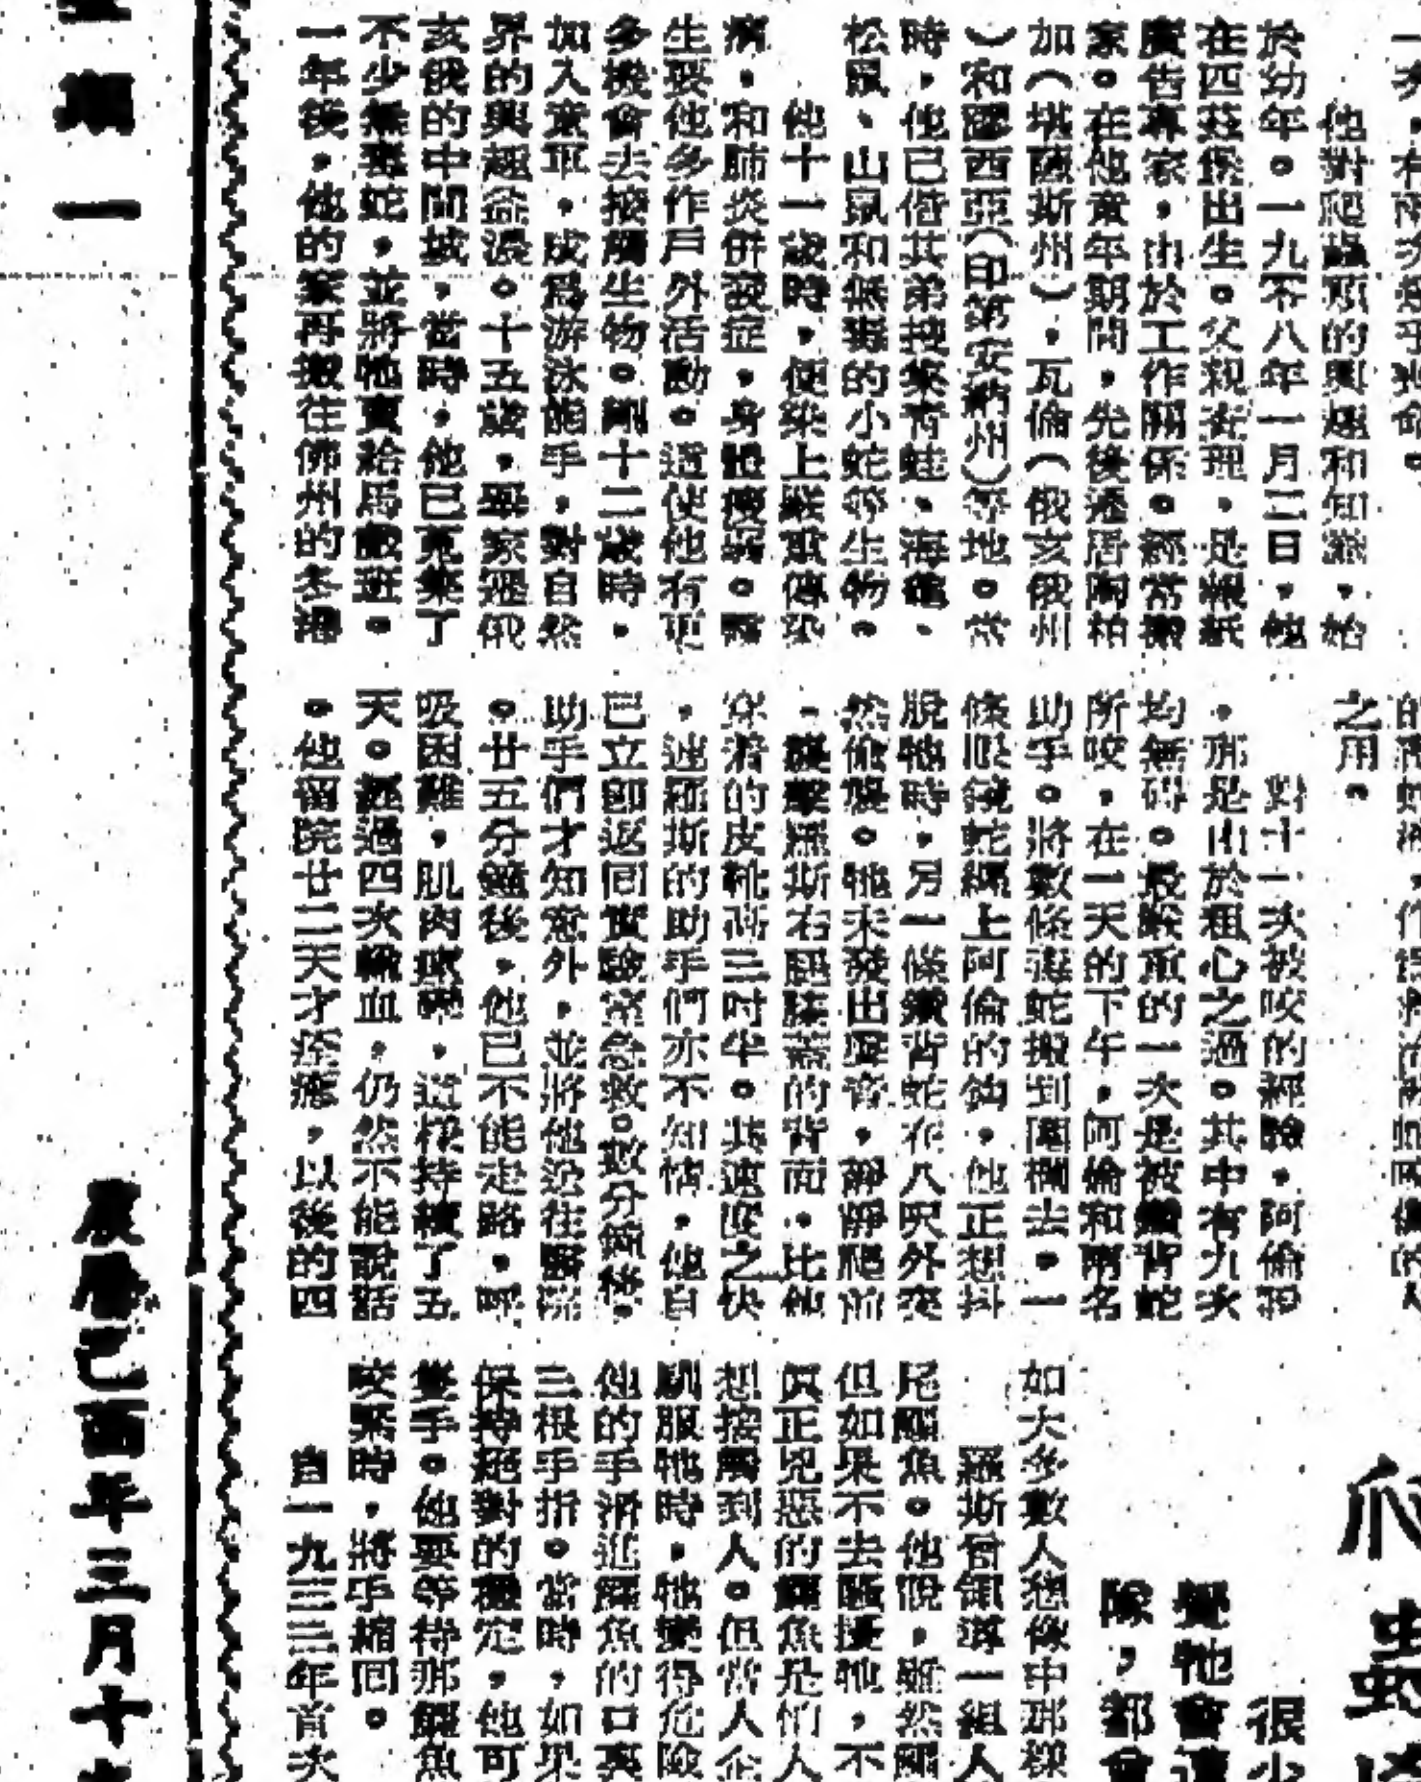 他對爬蟲類的興趣和知識，始
於幼年。一九零八年一月三日，他
在匹茲堡出生。父親安理，是報紙
廣告專家，由於工作關係。經常搬
家。在他童年期間，先後遷居陶柏
加（堪薩斯州），瓦倫（俄亥俄州
）和羅西亞（印第安納州）等地。當
時，他已偕其弟搜集青蛙、海龜、
松鼠、山鼠和無毒的小蛇等生物。
他十一歲時，便染上嚴重傳染
病，和肺炎併發症，身體瘦弱。醫
生要他多作戶外活動。這使他有更
多機會去接觸生物。剛十二歲時，
加入童軍，成爲游泳能手，對自然
界的興趣益濃。十五歲，舉家遷俄
亥俄的中間城，當時，他已蒐集了
不少無毒蛇，並將牠賣給馬戲班。
一年後，他的家再搬往佛州的冬港
之用。
對十一次被咬的經驗，阿倫認
，那是由於粗心之過。其中有九次
均無碍。最嚴重的一次是被鑽背蛇
所咬，在一天的下午，阿倫和兩名
助手。將數條毒蛇搬到圍欄去，一
條眼鏡蛇纏上阿倫的鈎，他正想抖
脫牠時，另一條鑽背蛇在八呎外突
然偷襲。牠未發出聲音，靜靜爬前
，襲擊羅斯右腿膝蓋的背面，比他
穿着的皮靴高三吋半。其速度之快
，連羅斯的助手們亦不知情，他自
已立卽返回實驗室急救。數分鐘後，
助手們才知意外，並將他送往醫院
。廿五分鐘後，他已不能走路，呼
吸困難，肌肉 ，這樣持續了五
天。經過四次輸血，仍然不能說話
。他留院廿二天才痊癒，以後的四
很少
覺牠會
隊，都會
如大多數人想像中那樣
羅斯曾領導一組人
尾魚。他說，雖然
但如果不去騷擾牠，不
眞正兇惡的鱷魚是怕人
想接觸到人。但當人企
馴服牠時，牠變得危險
他的手滑進鱷魚的口裏
三根手指。當時，如果
保持絕對的穩定，他可
隻手。他要等待那鱷魚
咬緊時，將手縮回。
自一九三三年首次
期一
農曆己酉年三月十